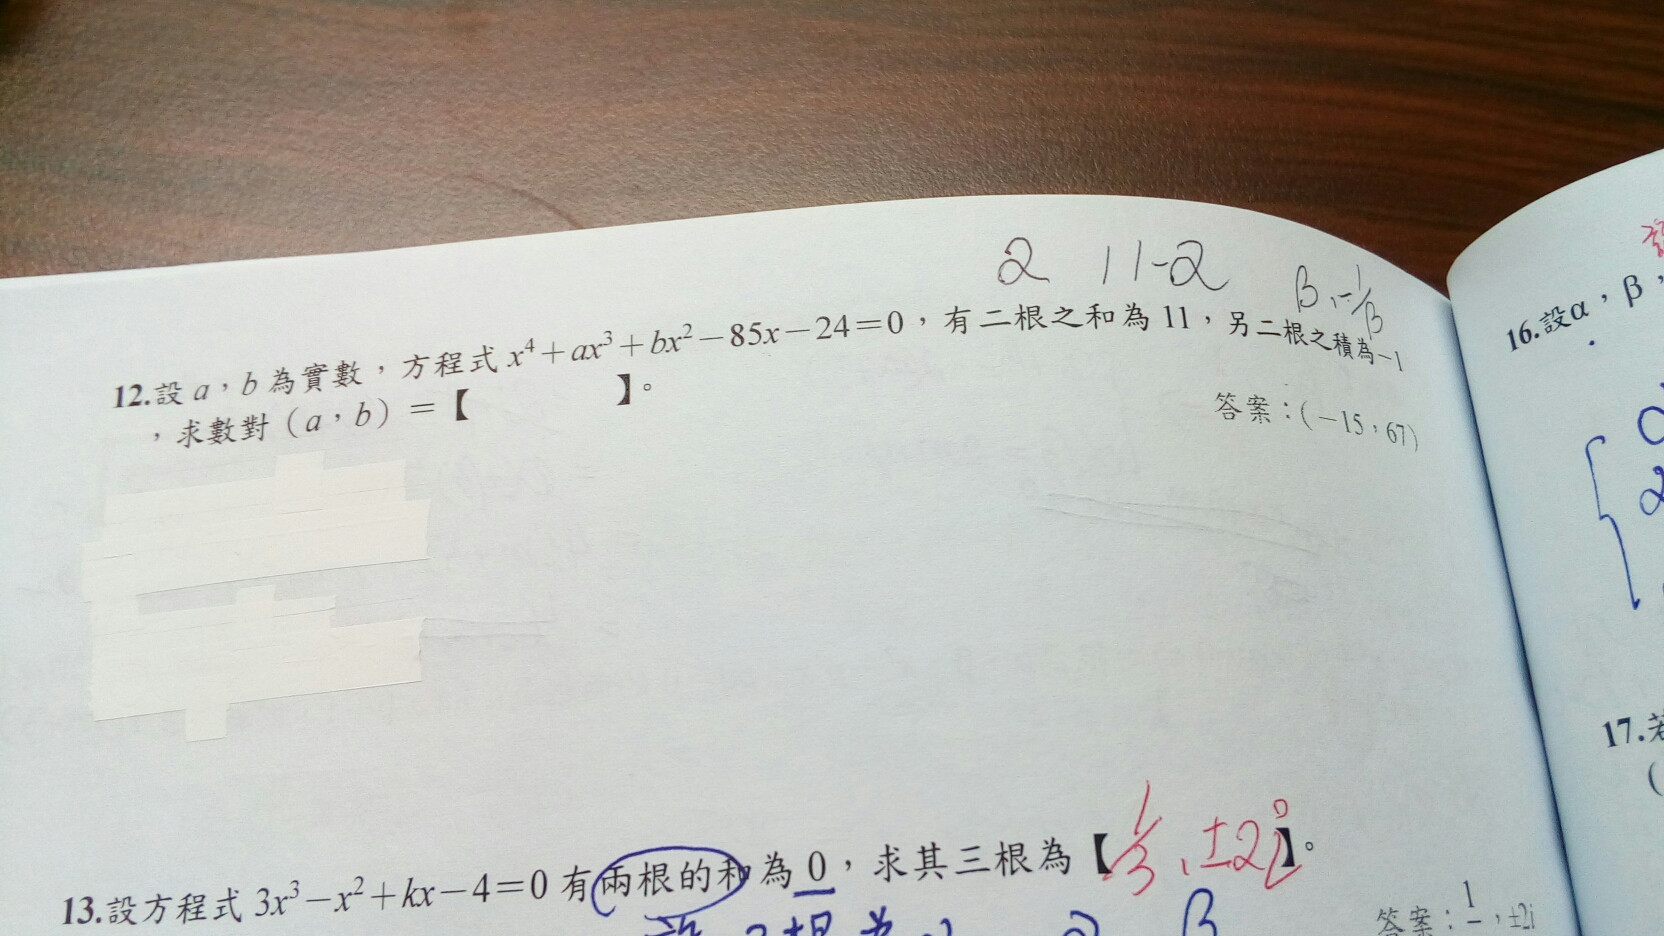 2 11-2
β, -1/β
12.設 a，b 為實數，方程式 x⁴+ax³+bx²−85x−24=0，有二根之和為 11，另二根之積為−1
，求數對（a，b）＝【 】。
答案：(−15，67)
13.設方程式 3x³−x²+kx−4=0 有兩根的和為 0，求其三根為【1/3、±2i】。
β
16.設α，β，
17.若
(